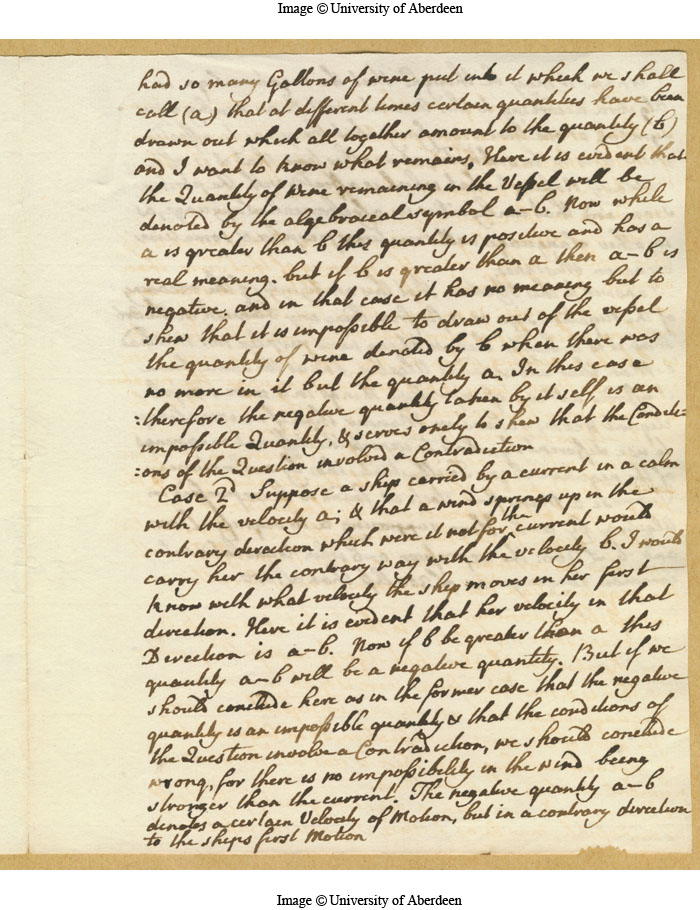 Image © University of Aberdeen
had so many Gallons of wine put into it which we shall
call (a) that at different times certain quantities have been
drawn out which all together amount to the quantity (b)
and I want to know what remains. Here it is evident that
the Quantity of Wine remaining in the Vessel will be
denoted by the algebraical symbol a–b. Now while
a is greater than b this quantity is positive and has a
real meaning. but if b is greater than a then a–b is
negative. and in that case it has no meaning but to
shew that it is impossible to draw out of the vessel
the quantity of wine denoted by b when there was
no more in it but the quantity a. In this case
:therefore the negative quantity taken by it self is an
impossible Quantity, & serves onely to shew that the Conditi=
:ons of the Question involved a Contradiction
Case 2d Suppose a ship carried by a current in a calm
with the velocity a; & that a wind springs up in the
contrary direction which were it not for the current would
carry her the contrary way with the velocity b. I would
know with what velocity the ship moves in her first
direction. Here it is evident that her velocity in that
Direction is a–b. Now if b be greater than a this
quantity a–b will be a negative quantity. But if we
should conclude here as in the former case that the negative
quantity is an impossible quantity & that the conditions of
the Question involve a Contradiction, we should conclude
wrong, for there is no impossibility in the wind being
stronger than the current. The negative quantity a–b
denotes a certain Velocity of Motion, but in a contrary direction
to the ships first Motion
Image © University of Aberdeen